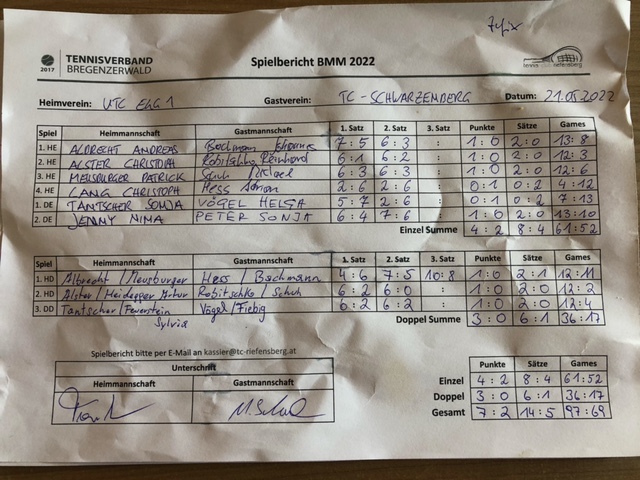 TENNISVERBAND
BREGENZERWALD
2017
Spielbericht BMM 2022
tennis riefensberg
Heimverein: UTC EGG 1 Gastverein: TC-SCHWARZENBERG Datum: 21.05.2022
Spiel Heimmannschaft Gastmannschaft 1. Satz 2. Satz 3. Satz Punkte Sätze Games
1. HE ALBRECHT ANDREAS Bachmann 7:5 6:3 : 1:0 2:0 13:8
2. HE ALSTER CHRISTOPH Robitschko Reinhard 6:1 6:2 : 1:0 2:0 12:3
3. HE MEUSBURGER PATRICK Schuh Michael 6:3 6:3 : 1:0 2:0 12:6
4. HE LANG CHRISTOPH Hess Adrian 2:6 2:6 : 0:1 0:2 4:12
1. DE TANTSCHER SONJA VÖGEL HELGA 5:7 2:6 : 0:1 0:2 7:13
2. DE JENNY NINA PETER SONJA 6:4 7:6 : 1:0 2:0 13:10
Einzel Summe 4:2 8:4 61:52
Spiel Heimmannschaft Gastmannschaft 1. Satz 2. Satz 3. Satz Punkte Sätze Games
1. HD Albrecht/Meusburger Hess/Bachmann 4:6 7:5 10:8 1:0 2:1 12:11
2. HD Alster/Heidegger Artur Robitschko/Schuh 6:2 6:0 : 1:0 2:0 12:2
3. DD Tantscher/Feuerstein Vögel/Fiebig 6:2 6:2 : 1:0 2:0 12:4
Sylvia
Doppel Summe 3:0 6:1 36:17
Spielbericht bitte per E-Mail an kassier@tc-riefensberg.at
Unterschrift
Heimmannschaft Gastmannschaft
Punkte Sätze Games
Einzel 4:2 8:4 61:52
Doppel 3:0 6:1 36:17
Gesamt 7:2 14:5 97:69